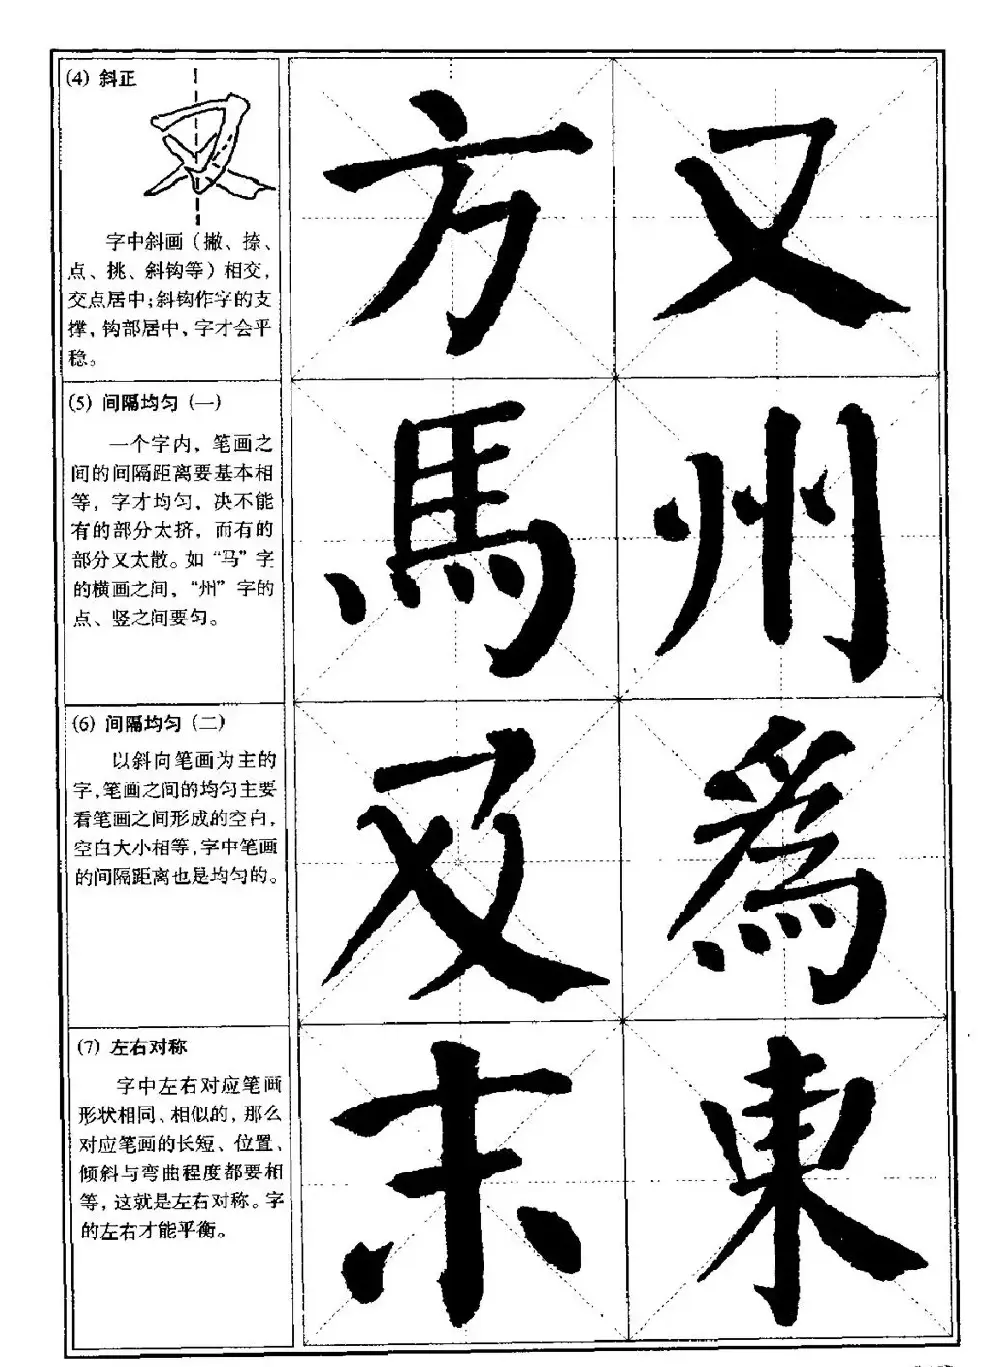 (4) 斜正
字中斜画（撇、捺、
点、挑、斜钩等）相交，
交点居中；斜钩作字的支
撑，钩部居中，字才会平
稳。
方 又
(5) 间隔均匀（一）
一个字内，笔画之
间的间隔距离要基本相
等，字才均匀，决不能
有的部分太挤，而有的
部分又太散。如“马”字
的横画之间，“州”字的
点、竖之间要匀。
馬 州
(6) 间隔均匀（二）
以斜向笔画为主的
字，笔画之间的均匀主要
看笔画之间形成的空白，
空白大小相等，字中笔画
的间隔距离也是均匀的。
及 為
(7) 左右对称
字中左右对应笔画
形状相同、相似的，那么
对应笔画的长短、位置、
倾斜与弯曲程度都要相
等，这就是左右对称。字
的左右才能平衡。
末 東